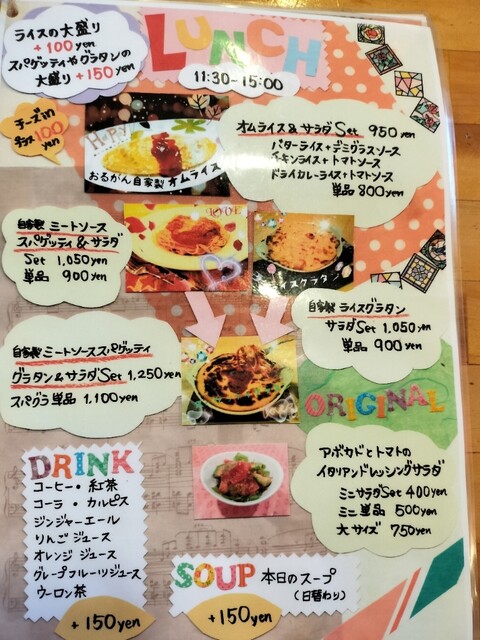 ライスの大盛り
+100yen
スパゲッティやグラタンの
大盛り+150yen
LUNCH
11:30-15:00
チーズin
プラス100
yen
Happy
おるがん自家製オムライス
オムライス&サラダSet 950yen
バターライス+デミグラスソース
チキンライス+トマトソース
ドライカレーライス+トマトソース
単品800yen
自家製 ミートソース
スパゲッティ&サラダ
Set 1,050yen
単品 900yen
LOVE
ライスグラタン
自家製 ライスグラタン
サラダSet 1,050yen
単品 900yen
自家製 ミートソーススパゲッティ
グラタン&サラダSet 1,250yen
スパグラ単品 1,100yen
ORIGINAL
アボカドとトマトの
イタリアンドレッシングサラダ
ミニサラダSet 400yen
ミニ単品 500yen
大サイズ 750yen
DRINK
コーヒー・紅茶
コーラ・カルピス
ジンジャーエール
りんごジュース
オレンジジュース
グレープフルーツジュース
ウーロン茶
+150yen
SOUP 本日のスープ
(日替わり)
+150yen